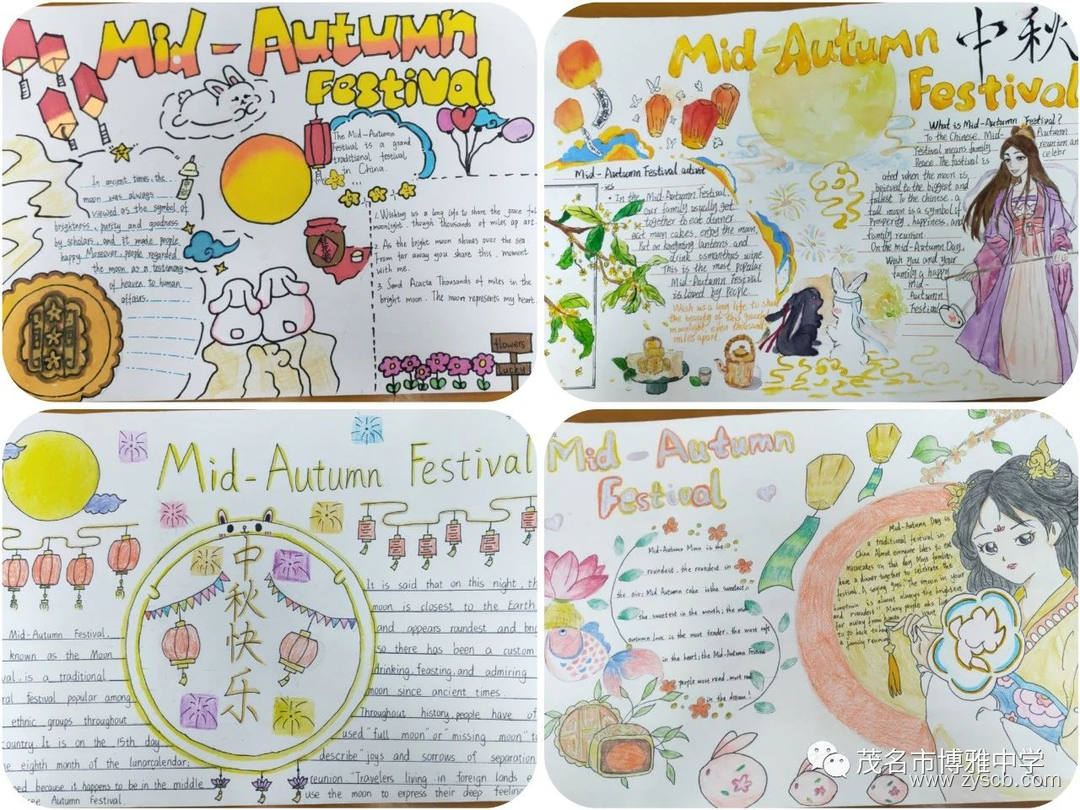 Mid-Autumn
Festival
The Mid-Autumn
Festival is a grand
traditional festival
in China.
In ancient times, the
moon was always
viewed as the symbol of
brightness, purity and goodness
by scholars, and it made people
happy. Moreover, people regarded
the moon as a testimony
of heaven to human
affairs.
1. Wishing us a long life to share the grace ful
moonlight, though thousands of miles ap art
2. As the bright moon shines over the sea
From far away you share this moment
with me.
3. Send Acacia Thousands of miles in the
bright moon. The moon represents my heart.
flowers
Lucky
Mid-Autumn
Festival
中秋
What is Mid-Autumn Festival?
To the Chinese, Mid-Autumn
Festival means family reunion an
Peace. The festival is celebr
ated when the moon is
believed to the biggest and
fullest. To the Chinese, a
full moon is a symbol of
prosperity, happiness, and
family reunion.
On the Mid-Autumn Day,
Wish you and your
family a happy
Mid-
Autumn
Festival
Mid-Autumn Festival activit
ies
In the Mid-Autumn Festival,
our family usually get
together to eat dinner
eat moon cakes, enjoy the moon,
drink osmanthus wine.
This is the most popular
Mid-Autumn Festival
is loved by people.
Wish us a long life to share
the beauty of this graceful
moonlight, even thousands
miles apart.
Mid-Autumn Festival
中秋快乐
Mid-Autumn Festival,
known as the Moon
val, is a traditional
ral festival popular among
ethnic groups throughout
country. It is on the 15th day
e eighth month of the lunar calendar;
ed because it happens to be in the middle
Autumn Festival
It is said that on this night, th
moon is closest to the Earth
and appears roundest and bri
so there has been a custom
drinking, feasting, and admiring
moon since ancient times.
Throughout history, people have of
used "full moon" or "missing moon" to
describe "joys and sorrows of separation
reunion" Travelers living in foreign lands
use the moon to express their deep feelin
Mid-Autumn
Festival
Mid-Autumn Moon is the
roundest, the roundest in
the air; Mid Autumn cake is the sweetest,
the sweetest in the mouth; the mid
autumn love is the most tender, the most soft
in the heart; the Mid-Autumn Festival
people most read, most read
in the dream!
Mid-Autumn Day is
a traditional festival in
China. Almost everyone likes to eat
mooncakes on that day. Most families
have a dinner together to celebrate the
festival. A saying goes "The moon in your
hometown is almost always the brightest
and roundest". Many people who live
far away from
to go back to
a family reunion.
茂名市博雅中学
www.zyscb.com